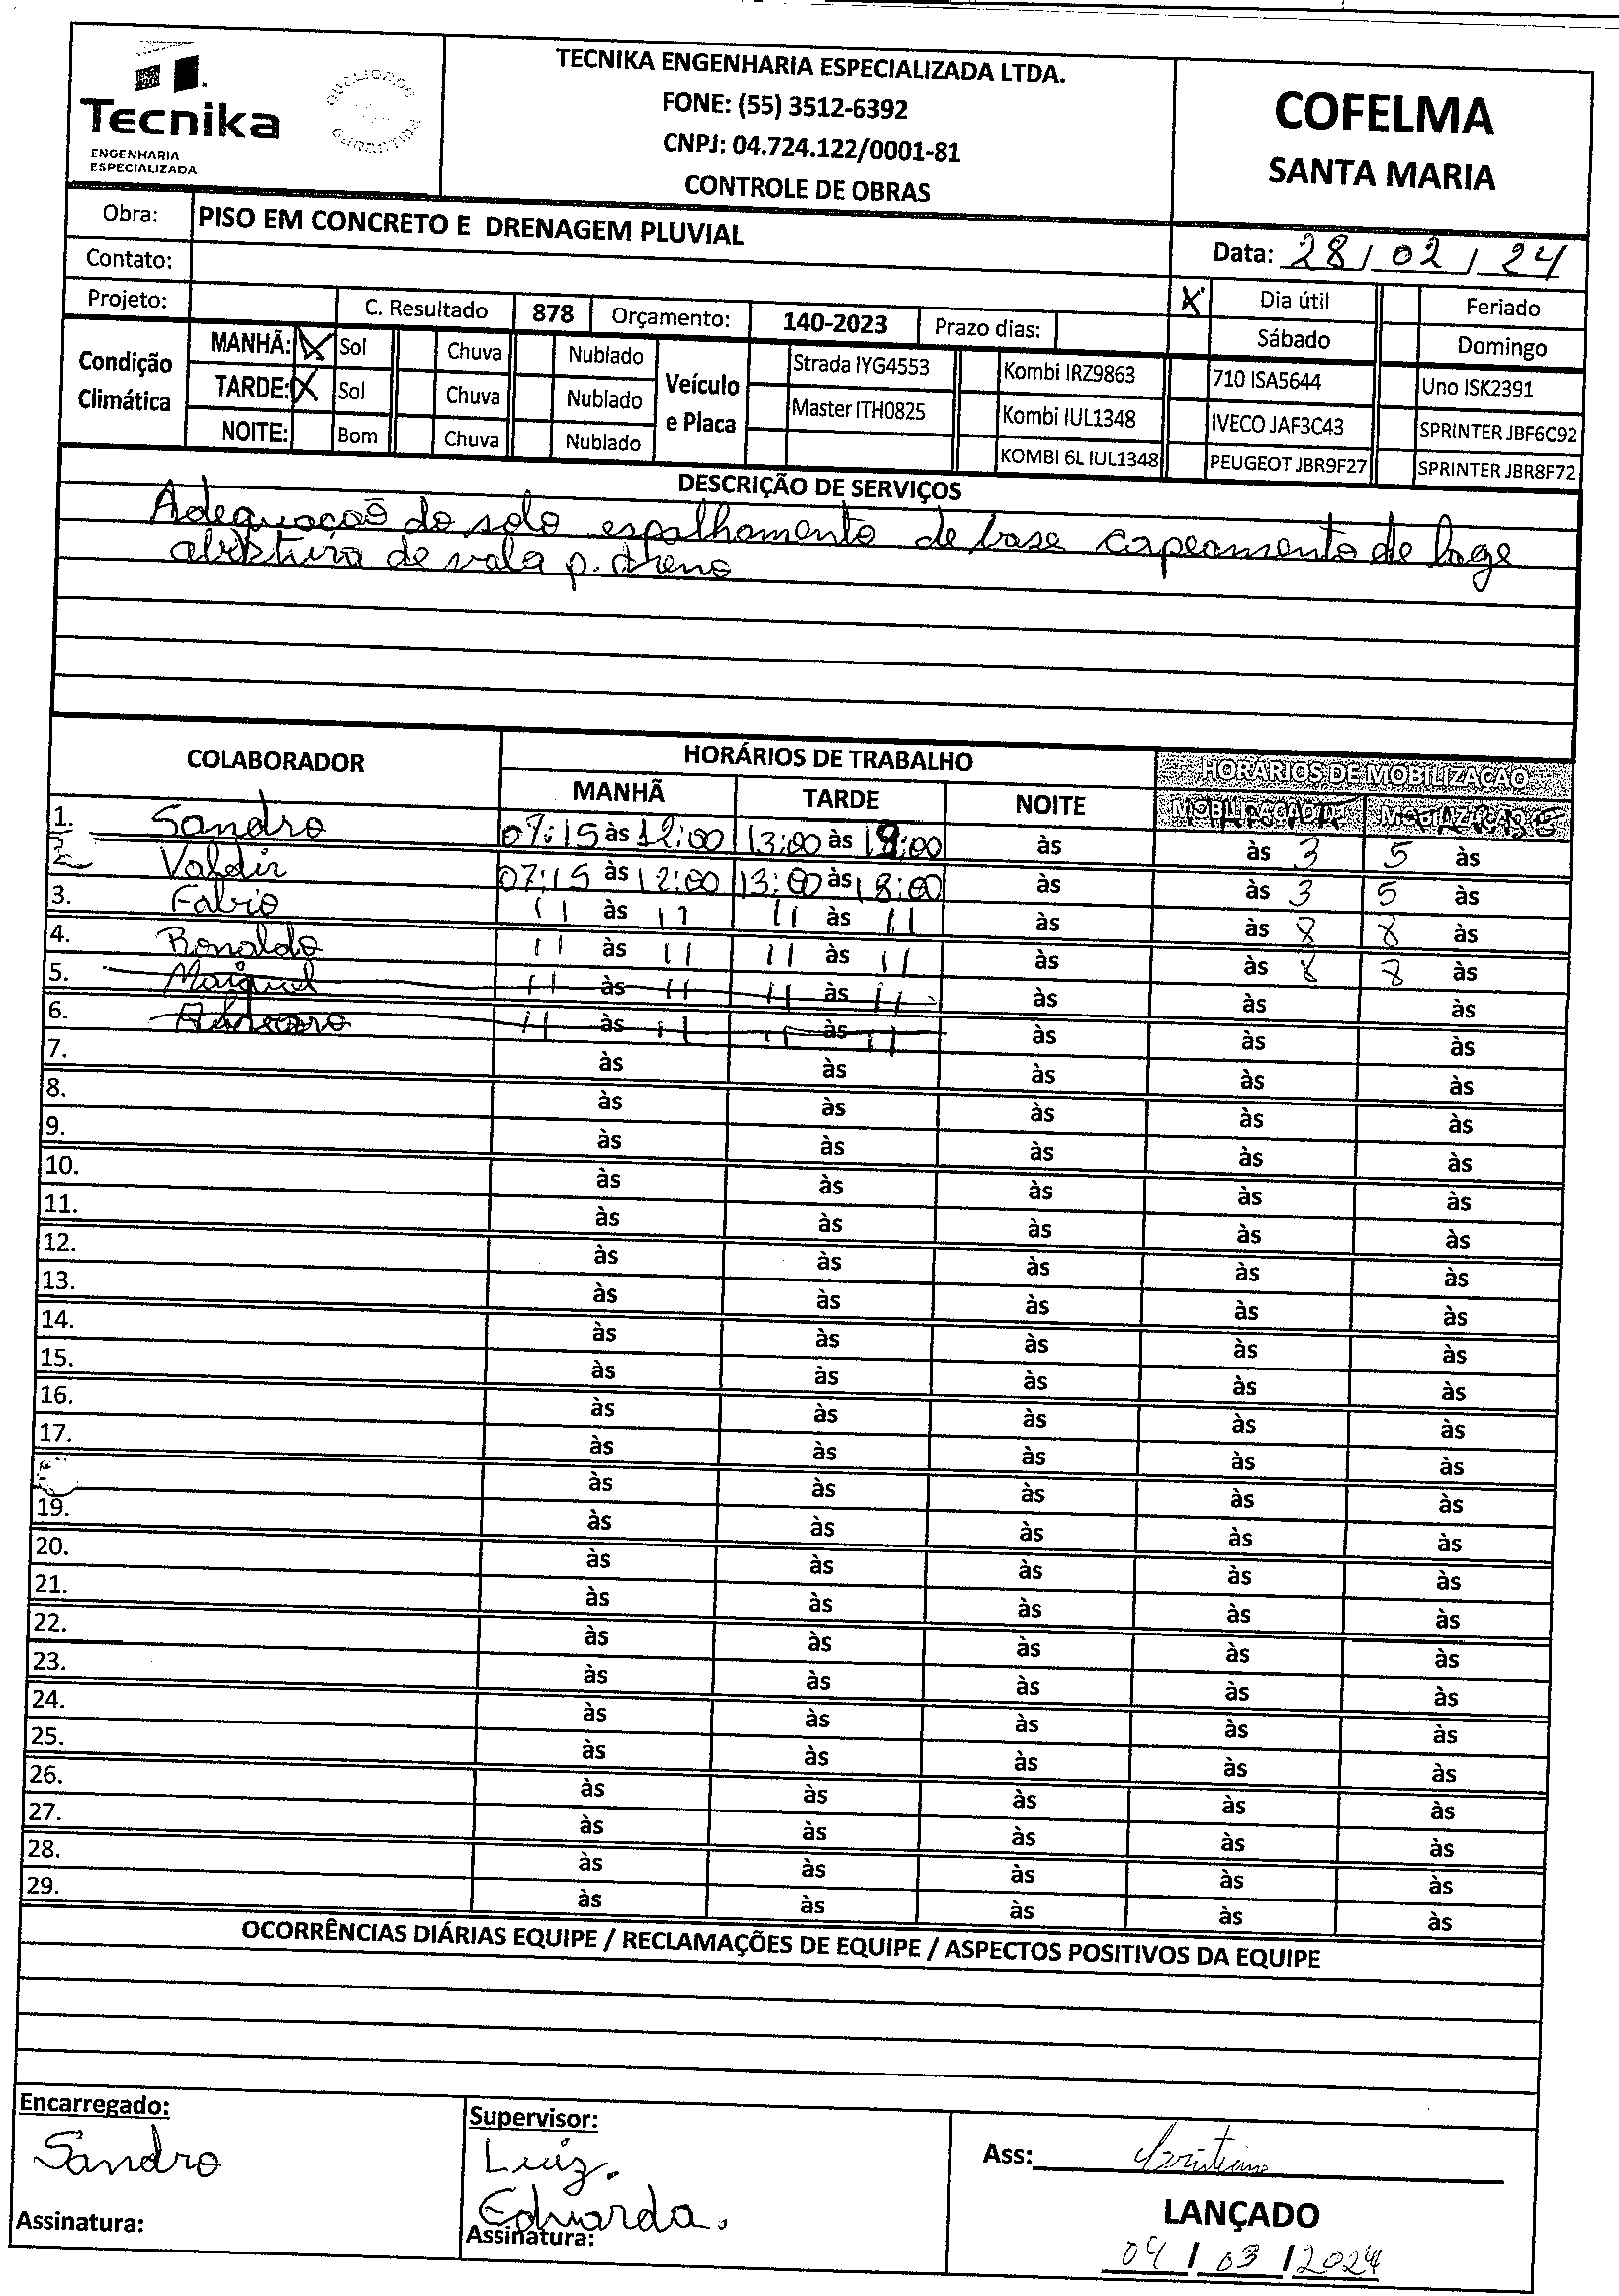 TECNIKA ENGENHARIA ESPECIALIZADA LTDA.
FONE: (55) 3512-6392
CNPJ: 04.724.122/0001-81
CONTROLE DE OBRAS
Tecnika
ENGENHARIA
ESPECIALIZADA
QUALIDADE GARANTIDA
COFELMA
SANTA MARIA
Obra: PISO EM CONCRETO E DRENAGEM PLUVIAL
Data: 28/02/24
Contato:
Projeto: C. Resultado 878 Orçamento: 140-2023 Prazo dias: X Dia útil Feriado
Sábado Domingo
Condição Climática
MANHÃ: X Sol Chuva Nublado
TARDE: X Sol Chuva Nublado
NOITE: Bom Chuva Nublado
Veículo e Placa
Strada IYG4553 Kombi IRZ9863 710 ISA5644 Uno ISK2391
Master ITH0825 Kombi IUL1348 IVECO JAF3C43 SPRINTER JBF6C92
KOMBI 6L IUL1348 PEUGEOT JBR9F27 SPRINTER JBR8F72
DESCRIÇÃO DE SERVIÇOS
Adequação do solo espalhamento de base capeamento de lage
abertura de vala p. dreno
COLABORADOR HORÁRIOS DE TRABALHO HORÁRIOS DE MOBILIZAÇÃO
MANHÃ TARDE NOITE
1. Sandro 07:15 às 12:00 13:00 às 18:00 às às 3 5 às
2. Valdir 07:15 às 12:00 13:00 às 18:00 às às 3 5 às
3. Fabio 11 às 11 11 às 11 às às 8 8 às
4. Ronaldo 11 às 11 11 às 11 às às 8 8 às
5. Maiquel 11 às 11 11 às 11 às às às
6. 11 às 11 11 às 11 às às às
7. às às às às às
8. às às às às às
9. às às às às às
10. às às às às às
11. às às às às às
12. às às às às às
13. às às às às às
14. às às às às às
15. às às às às às
16. às às às às às
17. às às às às às
às às às às às
19. às às às às às
20. às às às às às
21. às às às às às
22. às às às às às
23. às às às às às
24. às às às às às
25. às às às às às
26. às às às às às
27. às às às às às
28. às às às às às
29. às às às às às
OCORRÊNCIAS DIÁRIAS EQUIPE / RECLAMAÇÕES DE EQUIPE / ASPECTOS POSITIVOS DA EQUIPE
Encarregado:
Sandro
Assinatura:
Supervisor:
Luiz.
Eduarda.
Assinatura:
Ass: Cristiane
LANÇADO
04/03/2024